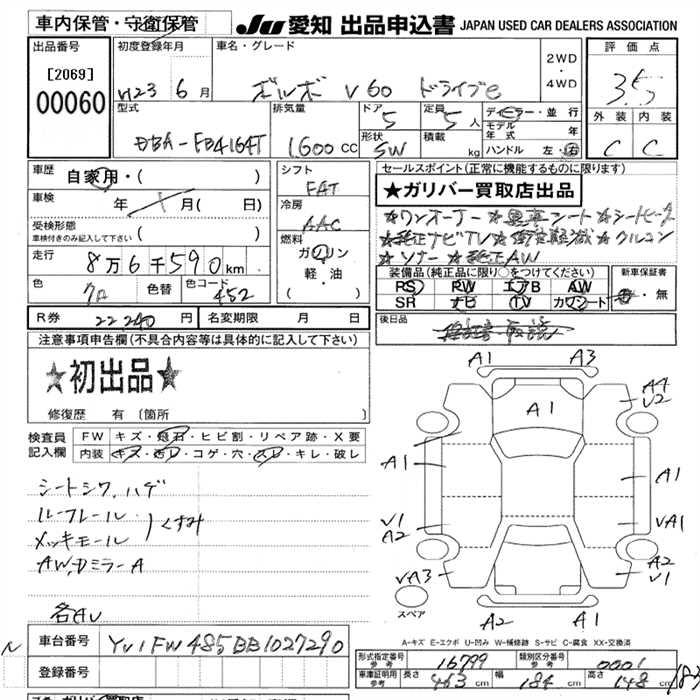 車内保管・守衛保管
JU 愛知 出品申込書 JAPAN USED CAR DEALERS ASSOCIATION
出品番号 [2069] 00060
初度登録年月 H23 6月
車名・グレード ボルボ V60 ドライブe
2WD・4WD
評価点 3.5
外装 C 内装 C
型式 DBA-FB4164T
排気量 1600cc
ドア 5 定員 5人
形状 SW 積載 kg
ディーラー・並行
モデル年式 年
ハンドル 左・右
車歴 自家用・( )
車検 年 / 月( 日)
受検形態 ( )
車検付きのみ記入して下さい
走行 8万6千590km
色 クロ 色替 色コード 452
シフト FAT
冷房 AAC
燃料 ガソリン
軽・油
( )
セールスポイント(正常に機能するものに限ります)
★ガリバー買取店出品
★ワンオーナー★黒革シート★シートヒーター
★純正ナビTV★衝突軽減★クルコン
★ソナー★純正AW
装備品(純正品に限り○をつけてください)
PS PW エアB AW
SR ナビ TV カワシート
新車保証書 有・無
後日品
R券 22240円 名変期限 月 日
注意事項申告欄(不具合内容等は具体的に記入して下さい)
★初出品★
修復歴 有 〔箇所 〕
検査員記入欄 FW キズ・飛石・ヒビ割・リペア跡・X要
内装 キズ・汚レ・コゲ・穴・スレ・キレ・破レ
シートシワ、ハゲ
ルーフレール
メッキモール
くすみ
AW、DミラーA
各AU
A1 A3
A1
A4
V2
A1 A1
V1 VA1
A2
VA3 A2
V1
A2 A1
スペア
A-キズ E-エクボ U-凹み W-補修跡 S-サビ C-腐食 XX-交換済
車台番号 YV1FW485BB1027290
登録番号
形式指定番号 参考 16799 類別区分番号 参考 0001
車庫証明用 参考 長さ 463cm 幅 184cm 高さ 148cm
183